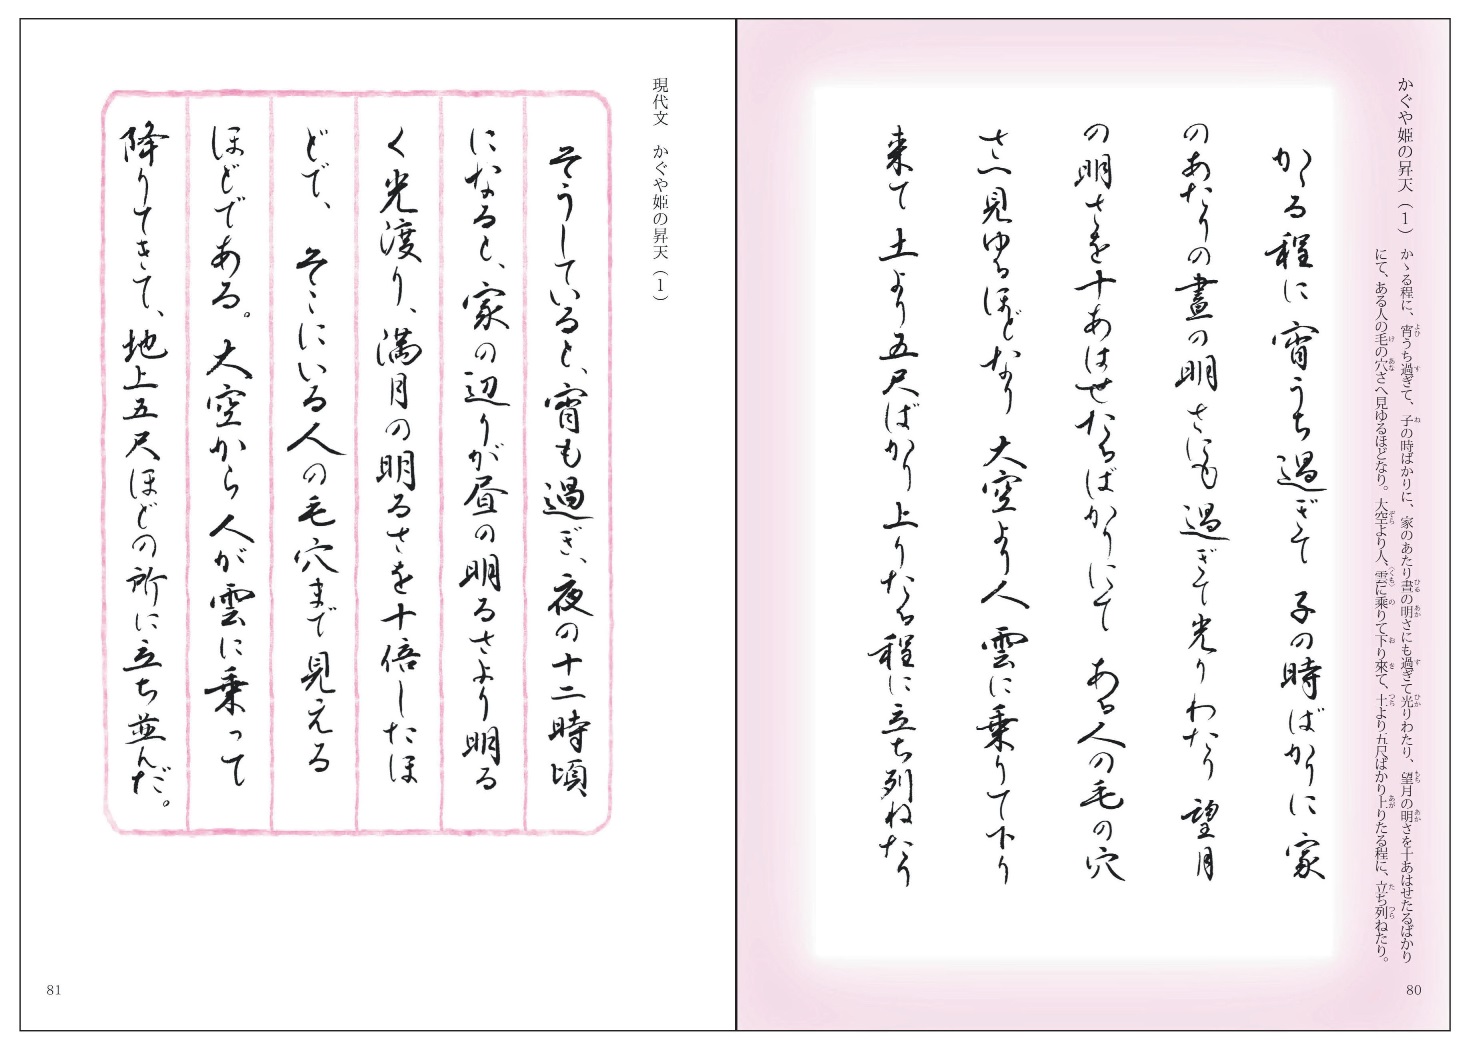 かぐや姫の昇天（1）
かゝる程に、宵うち過ぎて、子の時ばかりに、家のあたり晝の明さにも過ぎて光りわたり、望月の明さを十あはせたるばかり
にて、ある人の毛の穴さへ見ゆるほどなり。大空より人、雲に乘りて下り來て、土より五尺ばかり上りたる程に、立ち列ねたり。
かゝる程に宵うち過ぎて子の時ばかりに家
のあたりの晝の明さにも過ぎて光りわたり望月
の明さを十あはせたるばかりにてある人の毛の穴
さへ見ゆるほどなり大空より人雲に乗りて下り
来て土より五尺ばかり上りたる程に立ち列ねたり
80
現代文　かぐや姫の昇天（1）
そうしていると、宵も過ぎ、夜の十二時頃
になると、家の辺りが昼の明るさより明る
く光渡り、満月の明るさを十倍したほ
どで、そこにいる人の毛穴まで見える
ほどである。大空から人が雲に乗って
降りてきて、地上五尺ほどの所に立ち並んだ。
81